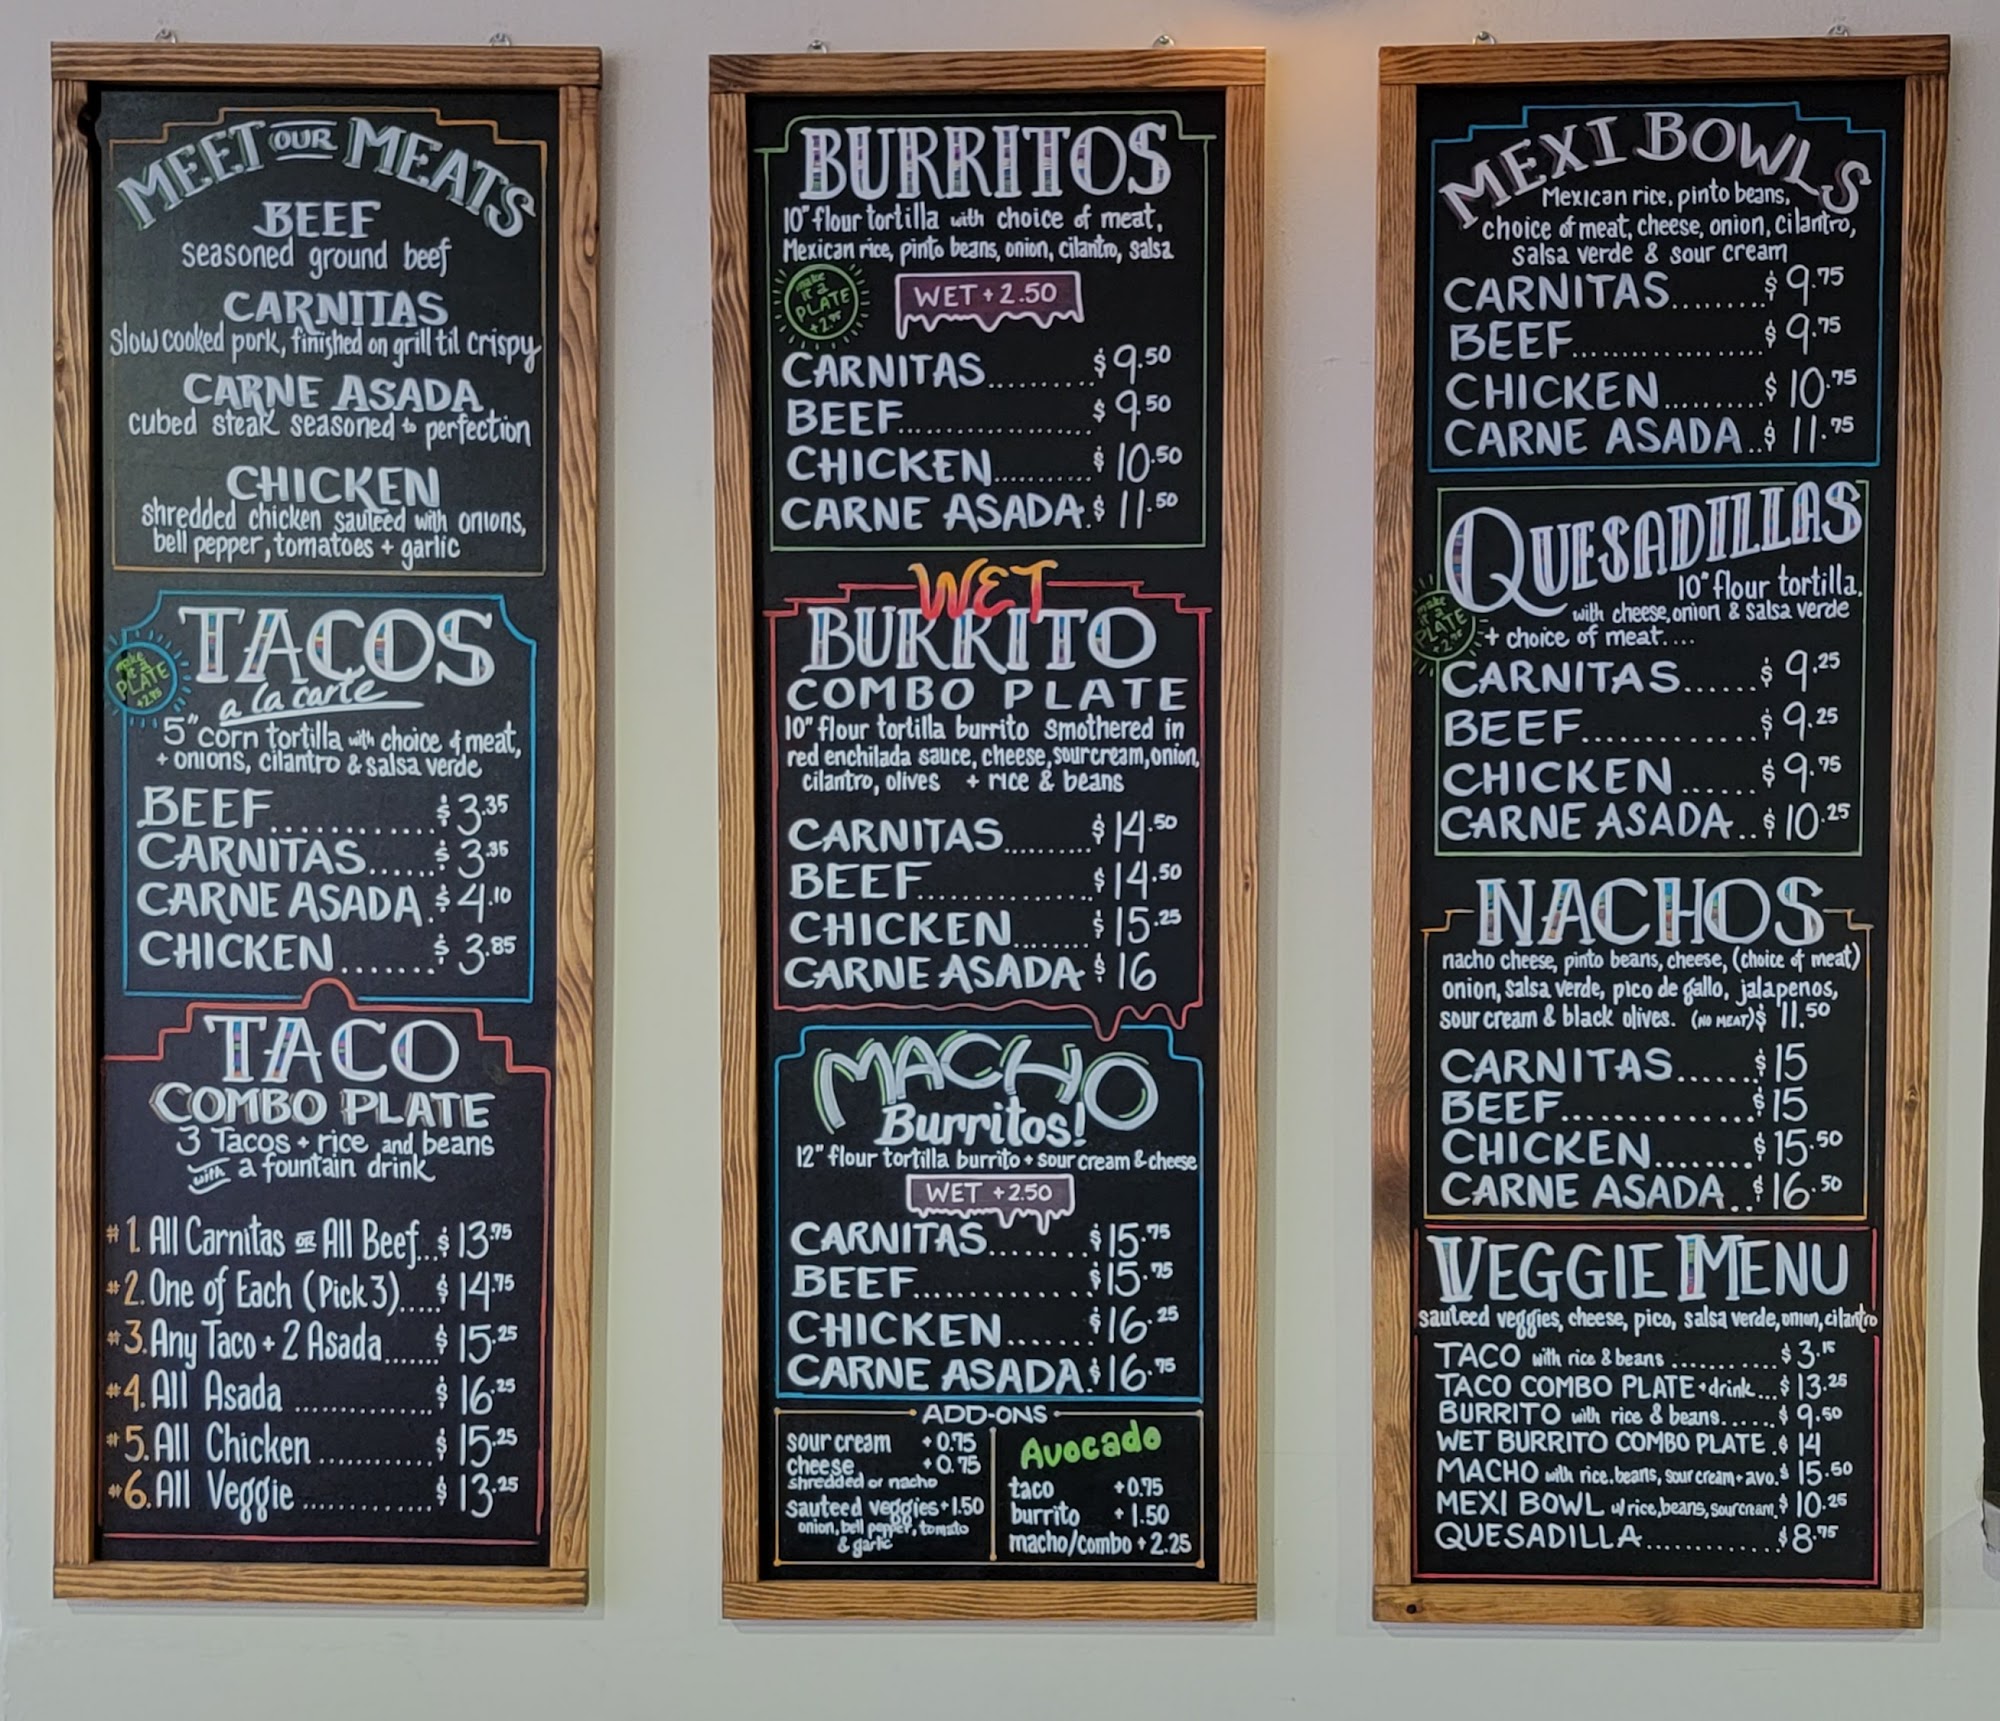 MEET OUR MEATS
BEEF
seasoned ground beef
CARNITAS
slow cooked pork, finished on grill til crispy
CARNE ASADA
cubed steak seasoned to perfection
CHICKEN
shredded chicken sauteed with onions,
bell pepper, tomatoes + garlic
TACOS
a la carte
make
it a
PLATE
+2.95
5" corn tortilla with choice of meat,
+ onions, cilantro & salsa verde
BEEF............. $3.35
CARNITAS...... $3.35
CARNE ASADA. $4.10
CHICKEN....... $3.85
TACO
COMBO PLATE
3 Tacos + rice and beans
with a fountain drink
#1. All Carnitas OR All Beef... $13.75
#2. One of Each (Pick 3)..... $14.75
#3. Any Taco + 2 Asada...... $15.25
#4. All Asada .............. $16.25
#5. All Chicken ............ $15.25
#6. All Veggie ............. $13.25
BURRITOS
10" flour tortilla with choice of meat,
Mexican rice, pinto beans, onion, cilantro, salsa
make
it a
PLATE
+2.95
WET +2.50
CARNITAS.......... $9.50
BEEF................... $9.50
CHICKEN.......... $10.50
CARNE ASADA. $11.50
WET
BURRITO
COMBO PLATE
10" flour tortilla burrito smothered in
red enchilada sauce, cheese, sour cream, onion,
cilantro, olives + rice & beans
CARNITAS......... $14.50
BEEF................. $14.50
CHICKEN....... $15.25
CARNE ASADA $16
MACHO
Burritos!
12" flour tortilla burrito + sour cream & cheese
WET +2.50
CARNITAS........ $15.75
BEEF................ $15.75
CHICKEN....... $16.25
CARNE ASADA. $16.75
ADD-ONS
sour cream +0.75
cheese +0.75
shredded or nacho
sauteed veggies +1.50
onion, bell pepper, tomato
& garlic
Avocado
taco +0.75
burrito +1.50
macho/combo +2.25
MEXI BOWLS
Mexican rice, pinto beans,
choice of meat, cheese, onion, cilantro,
salsa verde & sour cream
CARNITAS........ $9.75
BEEF................. $9.75
CHICKEN......... $10.75
CARNE ASADA.. $11.75
QUESADILLAS
10" flour tortilla,
with cheese, onion & salsa verde
+ choice of meat....
make
it a
PLATE
+2.95
CARNITAS...... $9.25
BEEF............... $9.25
CHICKEN...... $9.75
CARNE ASADA.. $10.25
NACHOS
nacho cheese, pinto beans, cheese, (choice of meat)
onion, salsa verde, pico de gallo, jalapenos,
sour cream & black olives. (NO MEAT) $11.50
CARNITAS....... $15
BEEF................ $15
CHICKEN........ $15.50
CARNE ASADA.. $16.50
VEGGIE MENU
sauteed veggies, cheese, pico, salsa verde, onion, cilantro
TACO with rice & beans ........... $3.15
TACO COMBO PLATE + drink... $13.25
BURRITO with rice & beans..... $9.50
WET BURRITO COMBO PLATE . $14
MACHO with rice, beans, sour cream + avo. $15.50
MEXI BOWL w/ rice, beans, sour cream. $10.25
QUESADILLA............. $8.75